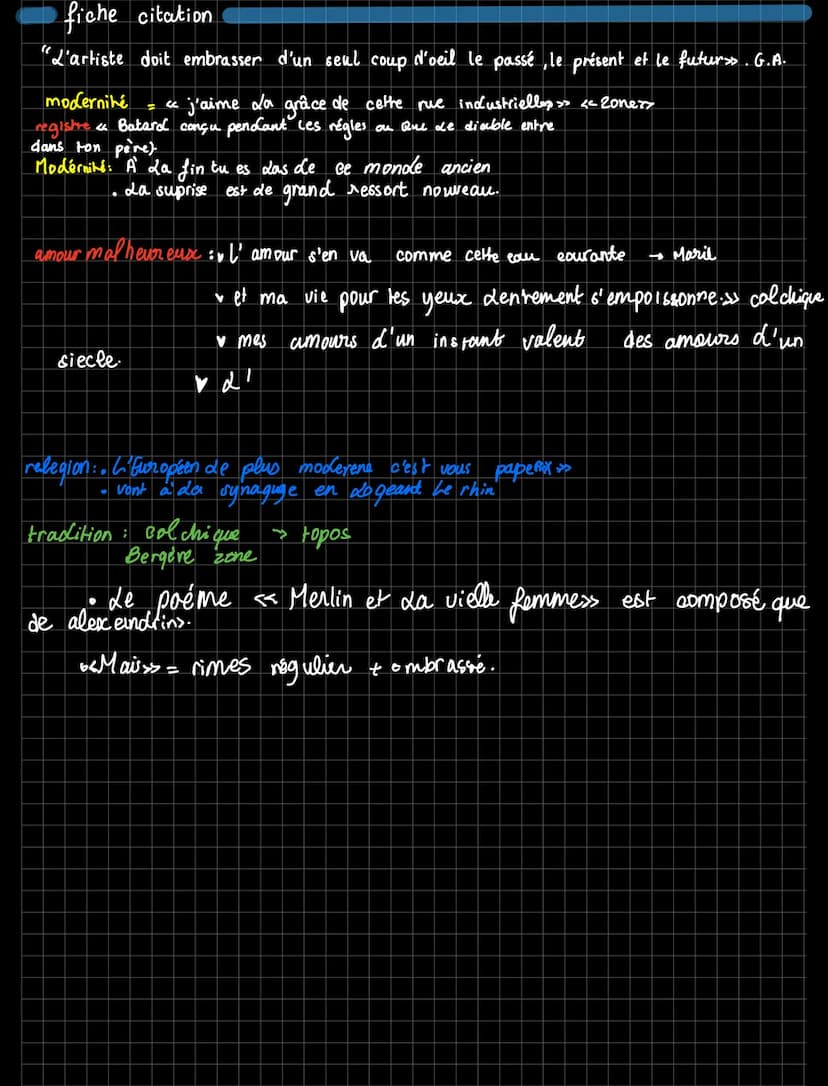 fiche citation
"L'artiste doit embrasser d'un seul coup d'oeil le passé, le présent et le futur». G.A.
modernité = « j'aime la grâce de cette rue industrielle» «Zone»
registre « Batard conçu pendant les régles ou que le diable entre
dans ton père}
Modérnité: À la fin tu es las de ce monde ancien
. La suprise est de grand ressort nouveau.
amour malheureux : L' amour s'en va comme cette eau courante → Marie
et ma vie pour tes yeux lentement s'empoissonne.» colchique
mes amours d'un instant valent des amours d'un
siecle.
L'
relegion: . L'Européen le plus moderene c'est vous pape
• vont à la synaguge en logeant le rhin
tradition : Colchique → topos
Bergère zone
• Le poéme « Merlin et la vielle femme» est composé que
de alexeindrins.
«Mai» = rimes régulier + ombrassé.